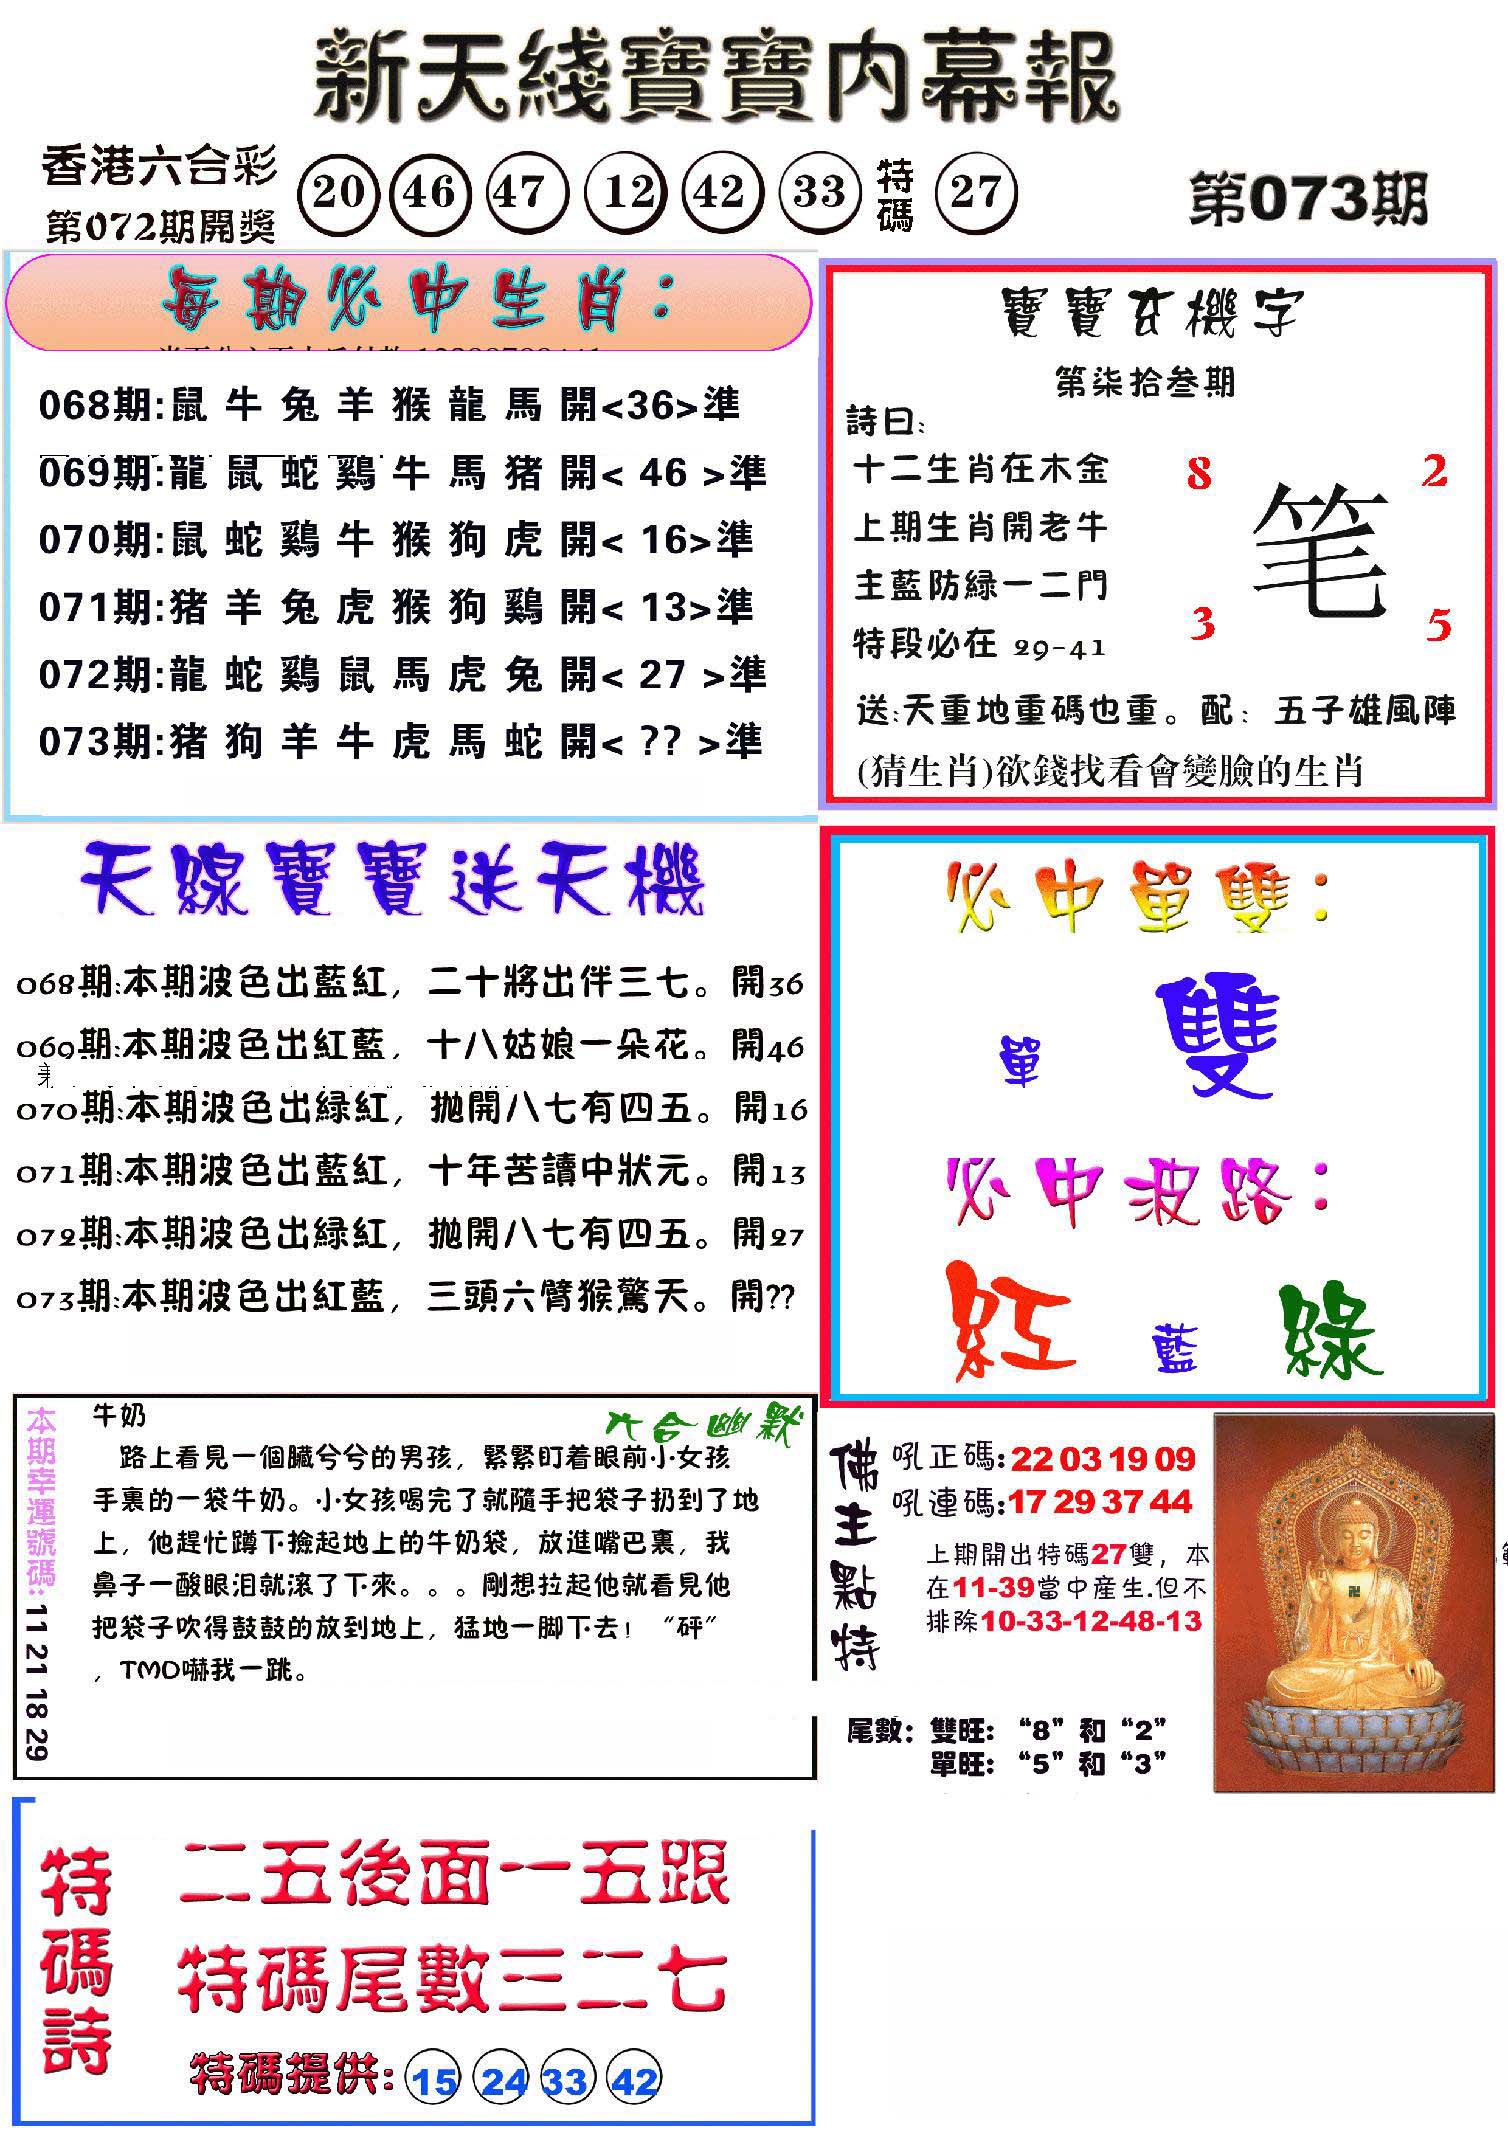 新天綫寶寶内幕報
香港六合彩
第072期開獎
20 46 47 12 42 33 特碼 27
第073期
每期必中生肖：
068期:鼠 牛 兔 羊 猴 龍 馬 開<36>準
069期:龍 鼠 蛇 鷄 牛 馬 猪 開< 46 >準
070期:鼠 蛇 鷄 牛 猴 狗 虎 開< 16>準
071期:猪 羊 兔 虎 猴 狗 鷄 開< 13>準
072期:龍 蛇 鷄 鼠 馬 虎 兔 開< 27 >準
073期:猪 狗 羊 牛 虎 馬 蛇 開< ?? >準
寶寶玄機字
第柒拾叁期
詩曰:
十二生肖在木金
上期生肖開老牛
主藍防緑一二門
特段必在 29-41
8 2
笔
3 5
送:天重地重碼也重。配：五子雄風陣
(猜生肖)欲錢找看會變臉的生肖
天線寶寶送天機
068期:本期波色出藍紅，二十將出伴三七。開36
069期:本期波色出紅藍，十八姑娘一朵花。開46
070期:本期波色出緑紅，抛開八七有四五。開16
071期:本期波色出藍紅，十年苦讀中狀元。開13
072期:本期波色出緑紅，抛開八七有四五。開27
073期:本期波色出紅藍，三頭六臂猴驚天。開??
必中單雙：
單 雙
必中波路：
紅 藍 綠
本期幸運號碼:11 21 18 29
六合幽默
牛奶
路上看見一個臟兮兮的男孩，緊緊盯着眼前小女孩
手裏的一袋牛奶。小女孩喝完了就隨手把袋子扔到了地
上，他趕忙蹲下撿起地上的牛奶袋，放進嘴巴裏，我
鼻子一酸眼泪就滚了下來。。。剛想拉起他就看見他
把袋子吹得鼓鼓的放到地上，猛地一脚下去！“砰”
，TMD嚇我一跳。
佛主點特
吼正碼:22 03 19 09
吼連碼:17 29 37 44
上期開出特碼27雙，本
在11-39當中産生.但不
排除10-33-12-48-13
尾數：雙旺：“8”和“2”
單旺：“5”和“3”
特碼詩
二五後面一五跟
特碼尾數三二七
特碼提供: 15 24 33 42